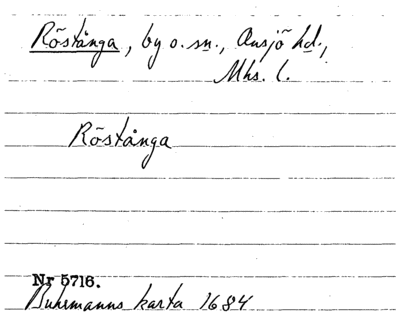 Röstånga, by o. sn., Onsjö hd.,
Mhs. l.
Röstånga
Nr 5716.
Buhrmanns karta 1684